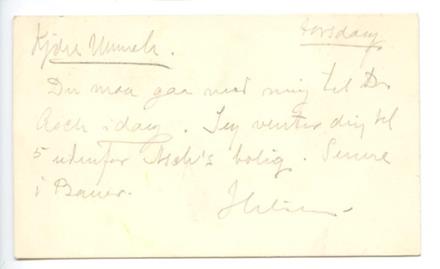 Torsdag
Kjære Munch.
Du maa gaa med mig til Dr
Asch idag. Jeg venter dig til
5 udenfor Asch's bolig. Senere
i Bauer.